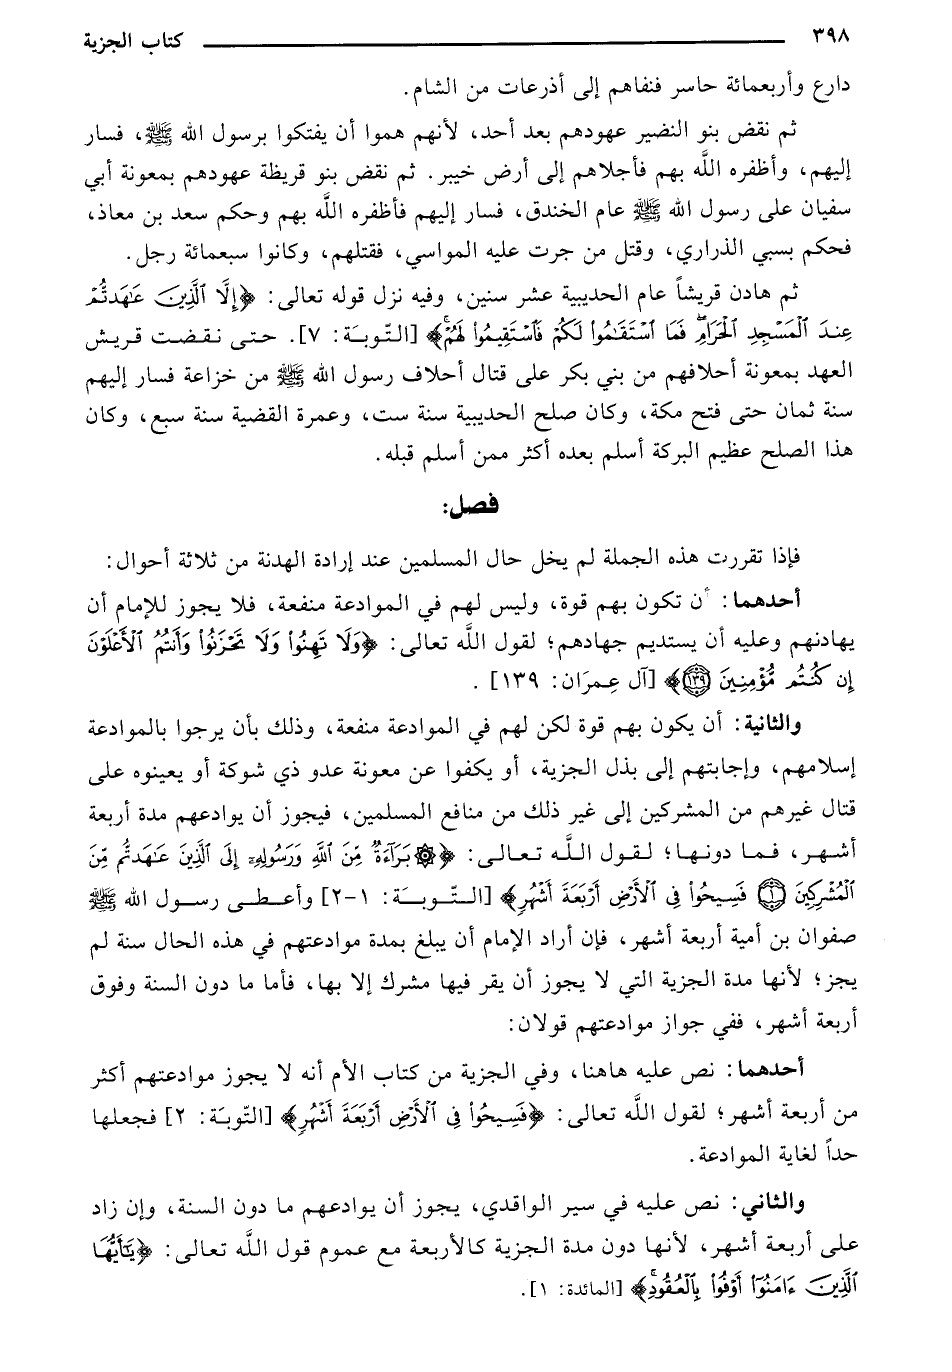 ٣٩٨ كتاب الجزية
دارع وأربعمائة حاسر فنفاهم إلى أذرعات من الشام.
ثم نقض بنو النضير عهودهم بعد أحد، لأنهم هموا أن يفتكوا برسول الله ﷺ، فسار
إليهم، وأظفره اللَّه بهم فأجلاهم إلى أرض خيبر. ثم نقض بنو قريظة عهودهم بمعونة أبي
سفيان على رسول الله ﷺ عام الخندق، فسار إليهم فأظفره اللَّه بهم وحكم سعد بن معاذ،
فحكم بسبي الذراري، وقتل من جرت عليه المواسي، فقتلهم، وكانوا سبعمائة رجل.
ثم هادن قريشاً عام الحديبية عشر سنين، وفيه نزل قوله تعالى: ﴿إِلَّا ٱلَّذِينَ عَٰهَدتُّمْ
عِندَ ٱلْمَسْجِدِ ٱلْحَرَامِۖ فَمَا ٱسْتَقَٰمُوا۟ لَكُمْ فَٱسْتَقِيمُوا۟ لَهُمْۚ﴾ [التّوبَة: ٧]. حتى نقضت قريش
العهد بمعونة أحلافهم من بني بكر على قتال أحلاف رسول الله ﷺ من خزاعة فسار إليهم
سنة ثمان حتى فتح مكة، وكان صلح الحديبية سنة ست، وعمرة القضية سنة سبع، وكان
هذا الصلح عظيم البركة أسلم بعده أكثر ممن أسلم قبله.
فصل:
فإذا تقررت هذه الجملة لم يخل حال المسلمين عند إرادة الهدنة من ثلاثة أحوال:
أحدهما: أن تكون بهم قوة، وليس لهم في الموادعة منفعة، فلا يجوز للإمام أن
يهادنهم وعليه أن يستديم جهادهم؛ لقول اللَّه تعالى: ﴿وَلَا تَهِنُوا۟ وَلَا تَحْزَنُوا۟ وَأَنتُمُ ٱلْأَعْلَوْنَ
إِن كُنتُم مُّؤْمِنِينَ ۝١٣٩﴾ [آل عِمرَان: ١٣٩].
والثانية: أن يكون بهم قوة لكن لهم في الموادعة منفعة، وذلك بأن يرجوا بالموادعة
إسلامهم، وإجابتهم إلى بذل الجزية، أو يكفوا عن معونة عدو ذي شوكة أو يعينوه على
قتال غيرهم من المشركين إلى غير ذلك من منافع المسلمين، فيجوز أن يوادعهم مدة أربعة
أشهر، فما دونها؛ لقول اللَّه تعالى: ﴿۞ بَرَآءَةٌ مِّنَ ٱللَّهِ وَرَسُولِهِۦٓ إِلَى ٱلَّذِينَ عَٰهَدتُّم مِّنَ
ٱلْمُشْرِكِينَ ۝١ فَسِيحُوا۟ فِى ٱلْأَرْضِ أَرْبَعَةَ أَشْهُرٍ﴾ [التّوبَة: ١-٢] وأعطى رسول الله ﷺ
صفوان بن أمية أربعة أشهر، فإن أراد الإمام أن يبلغ بمدة موادعتهم في هذه الحال سنة لم
يجز؛ لأنها مدة الجزية التي لا يجوز أن يقر فيها مشرك إلا بها، فأما ما دون السنة وفوق
أربعة أشهر، ففي جواز موادعتهم قولان:
أحدهما: نص عليه هاهنا، وفي الجزية من كتاب الأم أنه لا يجوز موادعتهم أكثر
من أربعة أشهر؛ لقول اللَّه تعالى: ﴿فَسِيحُوا۟ فِى ٱلْأَرْضِ أَرْبَعَةَ أَشْهُرٍ﴾ [التّوبَة: ٢] فجعلها
حداً لغاية الموادعة.
والثاني: نص عليه في سير الواقدي، يجوز أن يوادعهم ما دون السنة، وإن زاد
على أربعة أشهر، لأنها دون مدة الجزية كالأربعة مع عموم قول اللَّه تعالى: ﴿يَٰٓأَيُّهَا
ٱلَّذِينَ ءَامَنُوٓا۟ أَوْفُوا۟ بِٱلْعُقُودِۚ﴾ [المائدة: ١].